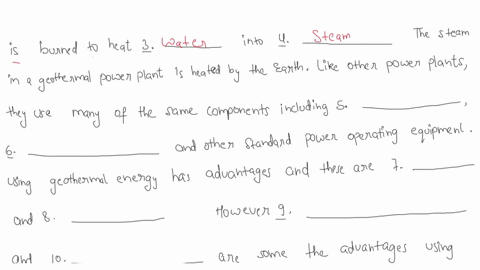 is burned to heat 3. Water into 4. Steam The steam
in a geothermal power plant is heated by the Earth. Like other power plants,
they use many of the same components including 5. ____________,
6. ____________ and other standard power operating equipment.
using geothermal energy has advantages and these are 7. ____________
and 8. ____________ However 9. ____________
and 10. ____________ are some the advantages using